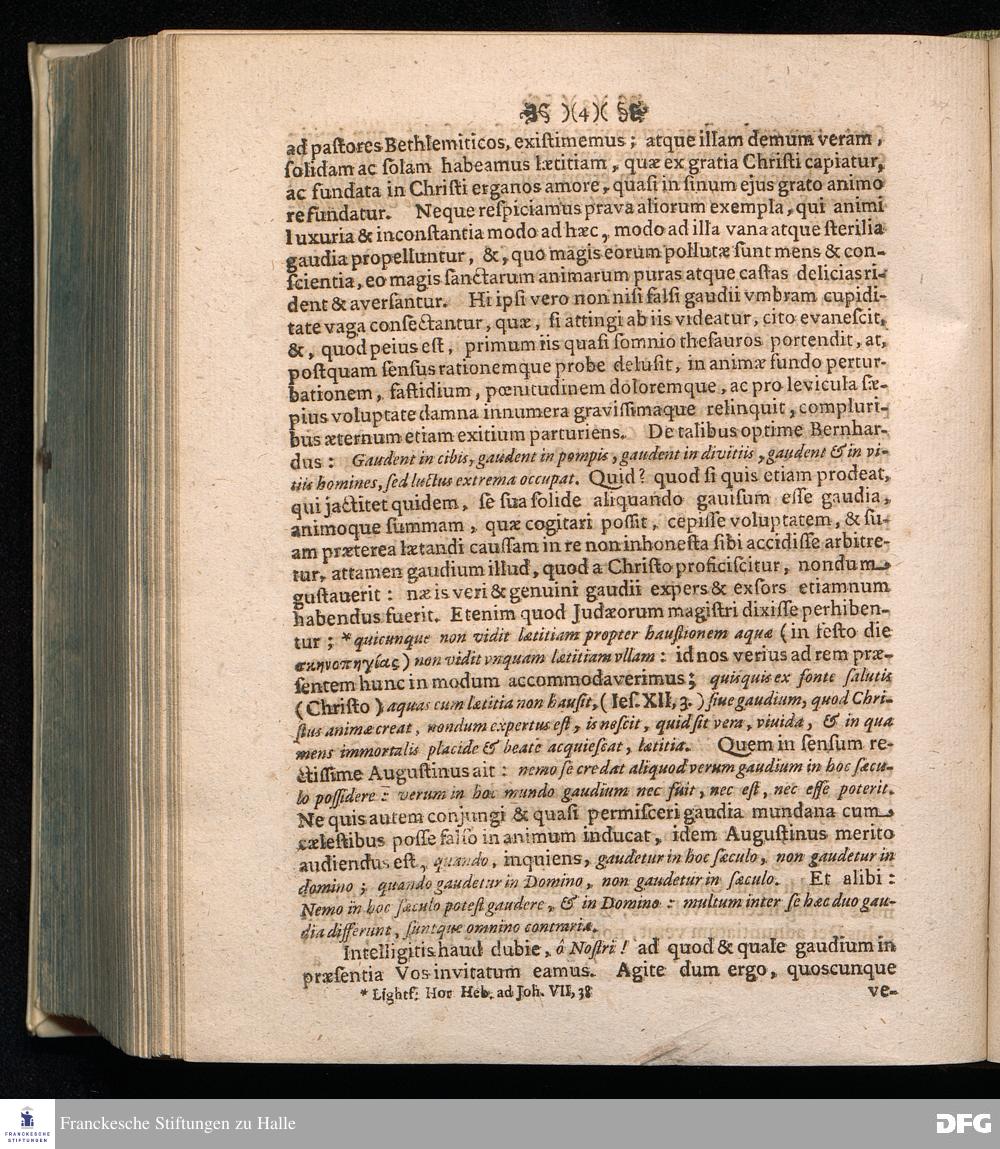 )(4)(
ad paſtores Bethlemiticos, exiſtimemus; atque illam demum veram,
ſolidam ac ſolam habeamus lætitiam, quæ ex gratia Chriſti capiatur,
ac fundata in Chriſti erga nos amore, quaſi in ſinum ejus grato animo
refundatur. Neque reſpiciamus prava aliorum exempla, qui animi
luxuria & inconſtantia modo ad hæc, modo ad illa vana atque ſterilia
gaudia propelluntur, &, quo magis eorum pollutæ ſunt mens & con-
ſcientia, eo magis ſanctarum animarum puras atque caſtas delicias ri-
dent & averſantur. Hi ipſi vero non niſi falſi gaudii vmbram cupidi-
tate vaga conſectantur, quæ, ſi attingi ab iis videatur, cito evaneſcit,
&, quod peius eſt, primum iis quaſi ſomnio theſauros portendit, at,
poſtquam ſenſus rationemque probe deluſit, in animæ fundo pertur-
bationem, faſtidium, pœnitudinem doloremque, ac pro levicula ſæ-
pius voluptate damna innumera graviſſimaque relinquit, compluri-
bus æternum etiam exitium parturiens. De talibus optime Bernhar-
dus: Gaudent in cibis, gaudent in pompis, gaudent in divitiis, gaudent & in vi-
tiis homines, ſed luctus extrema occupat. Quid? quod ſi quis etiam prodeat,
qui jactitet quidem, ſe ſua ſolide aliquando gauiſum eſſe gaudia,
animoque ſummam, quæ cogitari poſſit, cepiſſe voluptatem, & ſu-
am præterea lætandi cauſſam in re non inhoneſta ſibi accidiſſe arbitre-
tur, attamen gaudium illud, quod a Chriſto proficiſcitur, nondum
guſtauerit: næ is veri & genuini gaudii expers & exſors etiamnum
habendus fuerit. Etenim quod Judæorum magiſtri dixiſſe perhiben-
tur; * quicunque non vidit lætitiam propter hauſtionem aquæ (in feſto die
σκηνοπηγίας) non vidit vnquam lætitiam vllam: id nos verius ad rem præ-
ſentem hunc in modum accommodaverimus; quisquis ex fonte ſalutis
(Chriſto) aquas cum lætitia non hauſit, (Ieſ. XII, 3.) ſiue gaudium, quod Chri-
ſtus animæ creat, nondum expertus eſt, is neſcit, quid ſit vera, viuida, & in qua
mens immortalis placide & beate acquieſcat, lætitia. Quem in ſenſum re-
ctiſſime Auguſtinus ait: nemo ſe credat aliquod verum gaudium in hoc ſæcu-
lo poſſidere: verum in hoc mundo gaudium nec fuit, nec eſt, nec eſſe poterit.
Ne quis autem conjungi & quaſi permiſceri gaudia mundana cum
cæleſtibus poſſe falſo in animum inducat, idem Auguſtinus merito
audiendus eſt, quando, inquiens, gaudetur in hoc ſæculo, non gaudetur in
domino; quando gaudetur in Domino, non gaudetur in ſæculo. Et alibi:
Nemo in hoc ſæculo poteſt gaudere, & in Domino: multum inter ſe hæc duo gau-
dia differunt, ſuntque omnino contraria.
Intelligitis haud dubie, ô Noſtri! ad quod & quale gaudium in
præſentia Vos invitatum eamus. Agite dum ergo, quoscunque
* Lightf. Hor Heb. ad Joh. VII, 38
ve-
FRANCKESCHE
STIFTUNGEN
Franckesche Stiftungen zu Halle
DFG